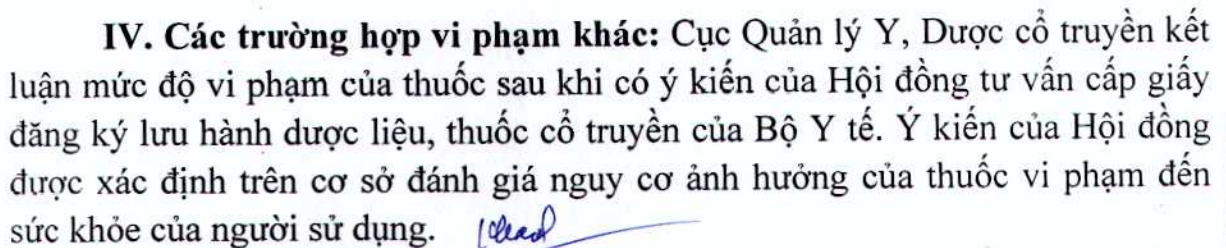 IV. Các trường hợp vi phạm khác: Cục Quản lý Y, Dược cổ truyền kết
luận mức độ vi phạm của thuốc sau khi có ý kiến của Hội đồng tư vấn cấp giấy
đăng ký lưu hành dược liệu, thuốc cổ truyền của Bộ Y tế. Ý kiến của Hội đồng
được xác định trên cơ sở đánh giá nguy cơ ảnh hưởng của thuốc vi phạm đến
sức khỏe của người sử dụng.